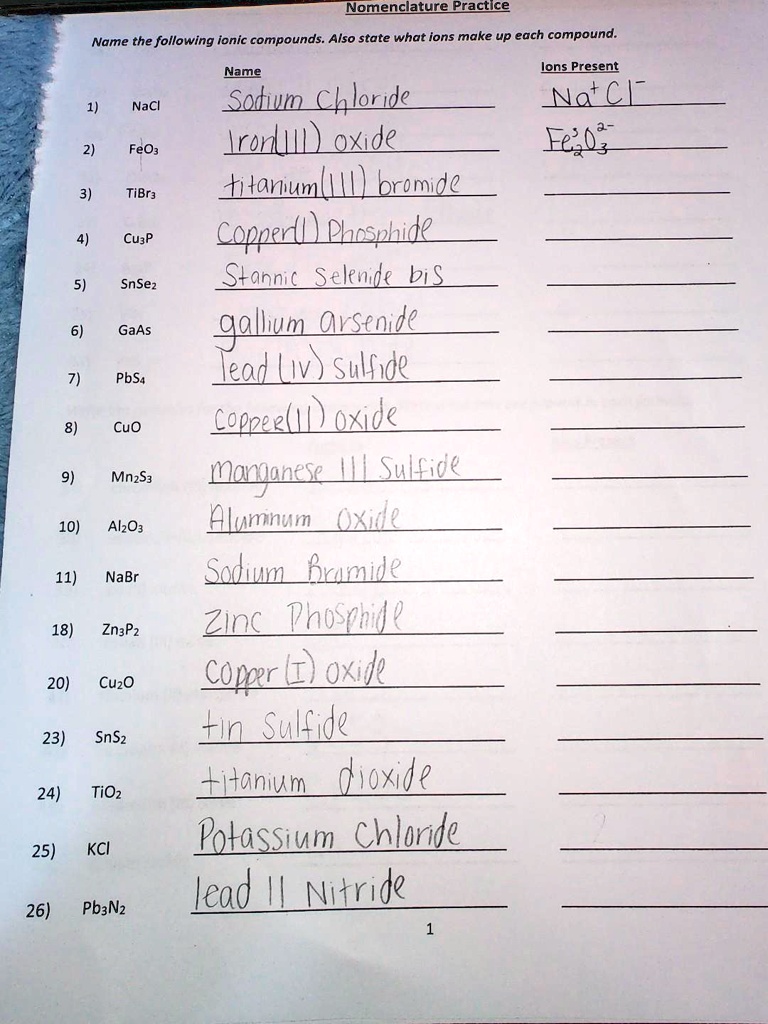 Nomenclature Practice
Name the following ionic compounds. Also state what ions make up each compound.
Name Ions Present
1) NaCl Sodium Chloride Na⁺ Cl⁻
2) FeO₃ Iron(III) oxide Fe₂³O₃²⁻
3) TiBr₃ titanium(III) bromide
4) Cu₃P Copper(I) Phosphide
5) SnSe₂ Stannic Selenide bis
6) GaAs gallium arsenide
7) PbS₄ lead (IV) sulfide
8) CuO Copper(II) oxide
9) Mn₂S₃ manganese III Sulfide
10) Al₂O₃ Aluminum Oxide
11) NaBr Sodium Bromide
18) Zn₃P₂ Zinc Phosphide
20) Cu₂O Copper (I) oxide
23) SnS₂ tin Sulfide
24) TiO₂ titanium dioxide
25) KCl Potassium Chloride
26) Pb₃N₂ lead II Nitride
1